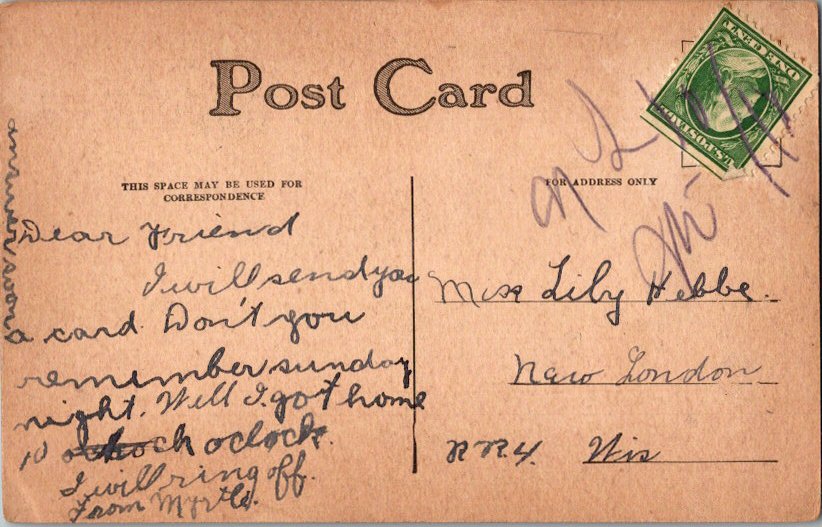 Post Card
THIS SPACE MAY BE USED FOR
CORRESPONDENCE
FOR ADDRESS ONLY
U.S. POSTAGE
ONE CENT
Dear Friend
I will send you
a card. Don't you
remember sunday
night. Well I got home
10 oclock
I will ring off.
From Myrtle.
answer soon
Miss Lily Hebbe.
New London
RR4. Wis